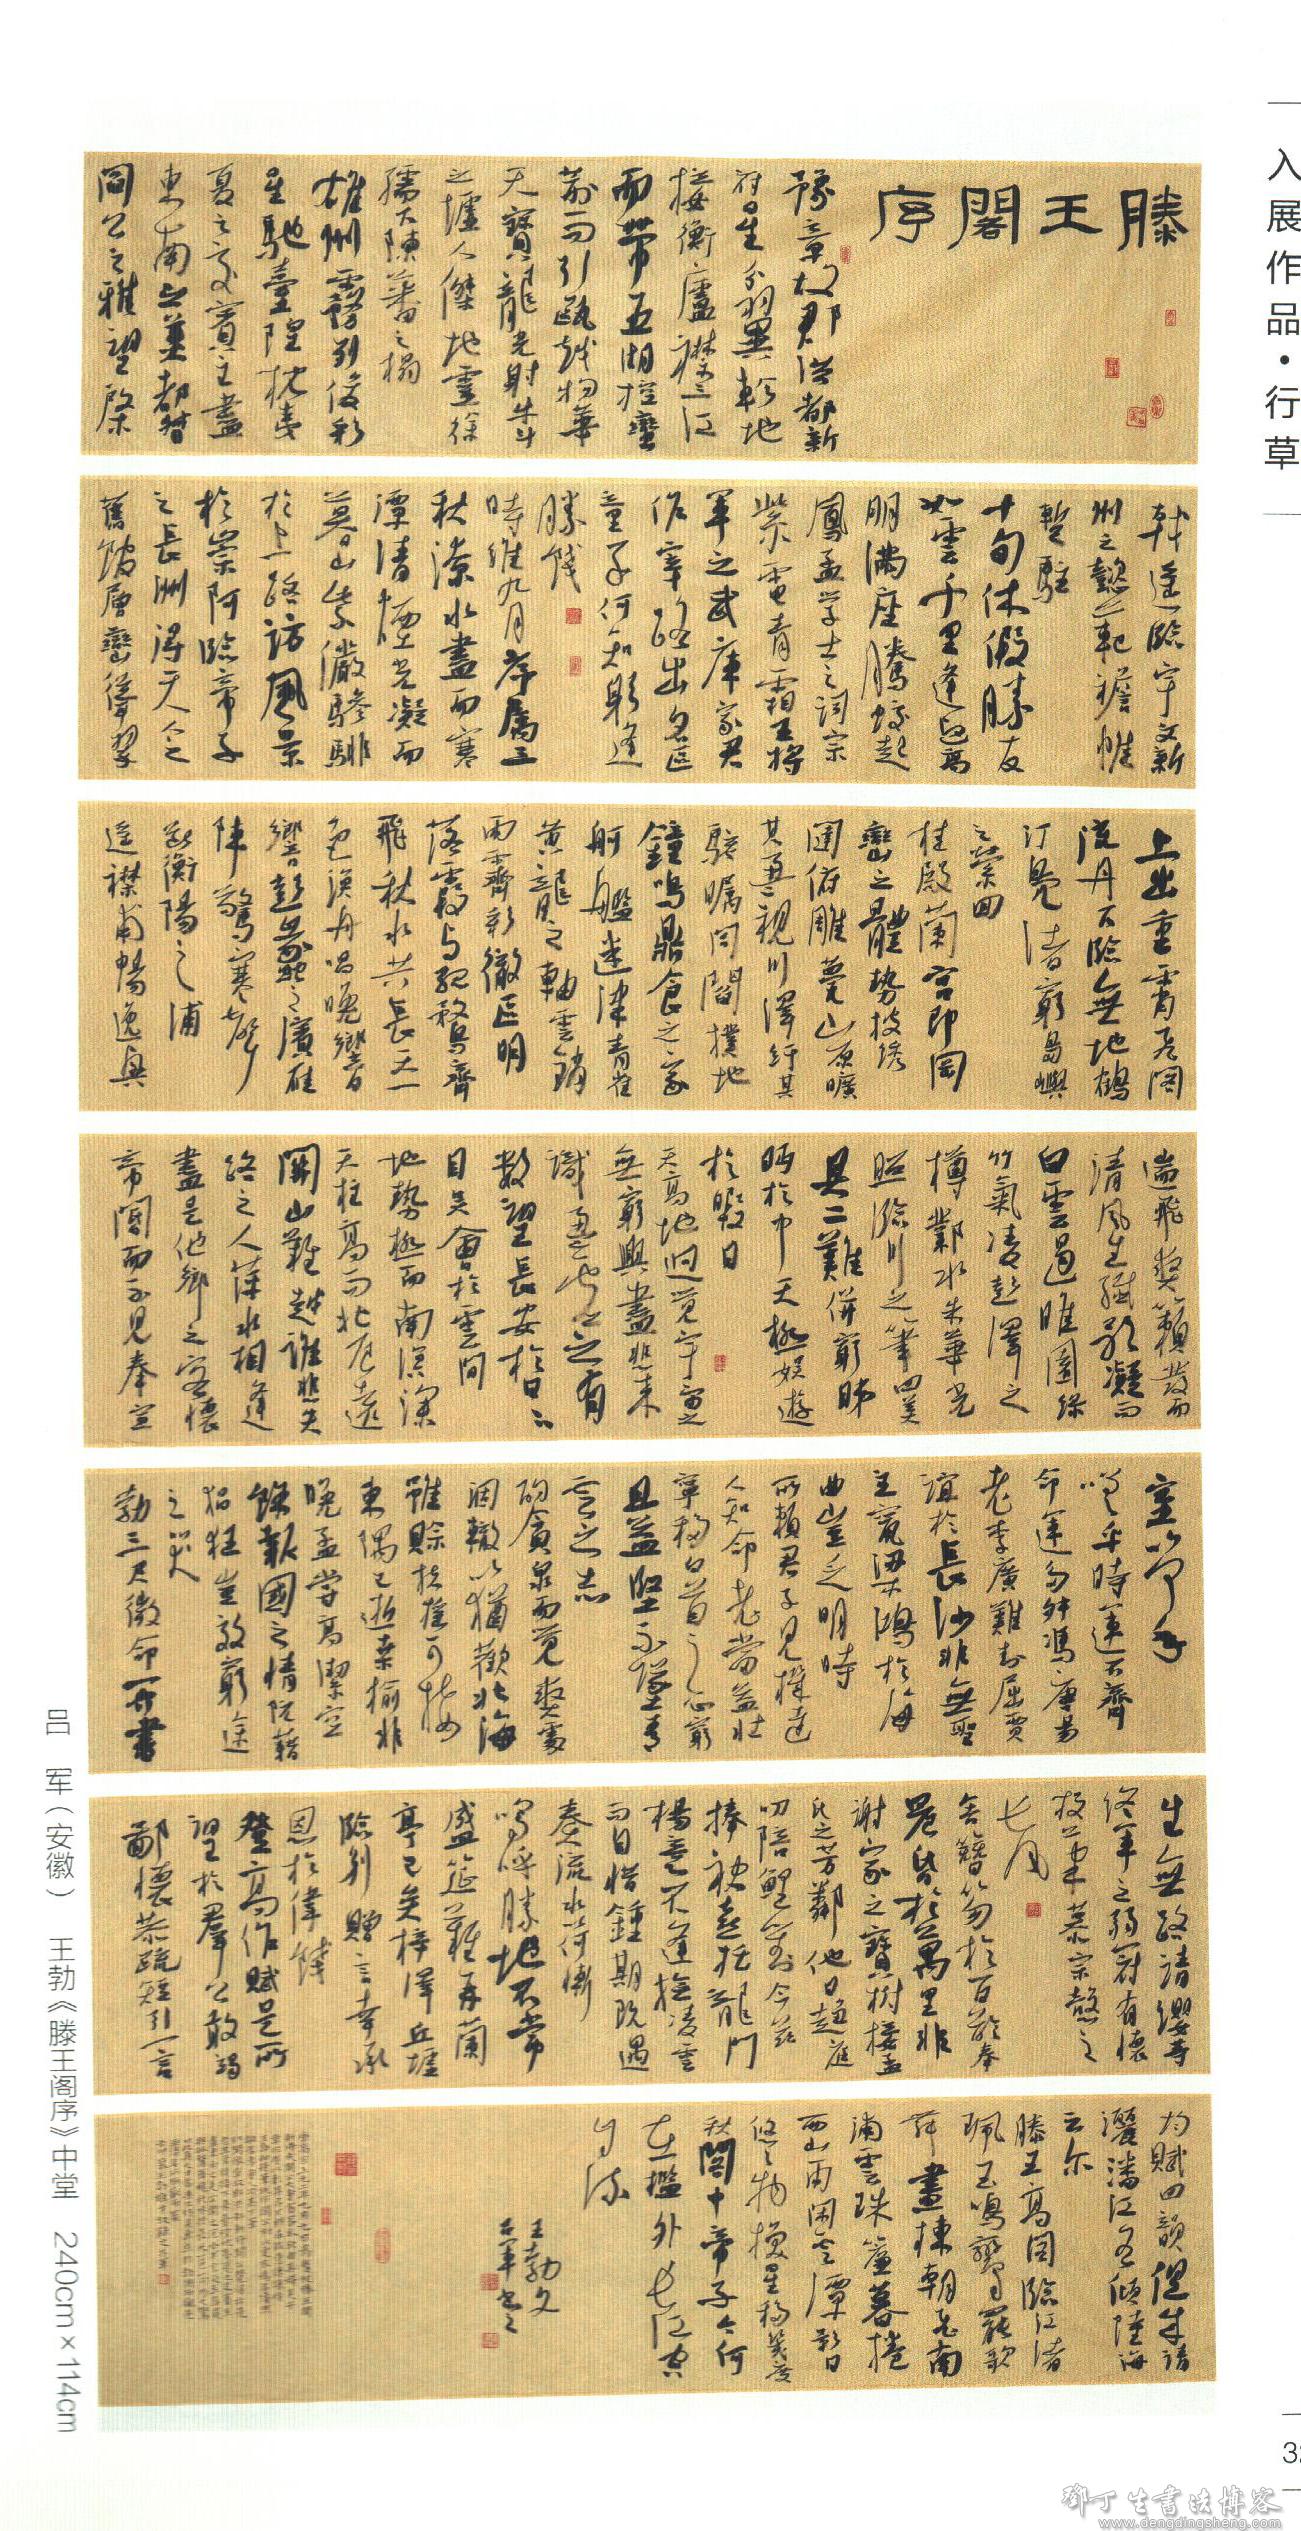 入展作品·行草
滕王閣序
豫章故郡洪都新
府星分翼軫地
接衡廬襟三江
而帶五湖控蠻
荊而引甌越物華
天寶龍光射牛斗
之墟人傑地靈徐
孺下陳蕃之榻
雄州霧列俊彩
星馳臺隍枕夷
夏之交賓主盡
東南之美都督
閻公之雅望棨
戟遙臨宇文新
州之懿範襜帷
暫駐
十旬休假勝友
如雲千里逢迎高
朋滿座騰蛟起
鳳孟學士之詞宗
紫電青霜王將
軍之武庫家君
作宰路出名區
童子何知躬逢
勝餞
時維九月序屬三
秋潦水盡而寒
潭清煙光凝而
暮山紫儼驂騑
於上路訪風景
於崇阿臨帝子
之長洲得天人之
舊館層巒聳翠
上出重霄飛閣
流丹下臨無地鶴
汀鳧渚窮島嶼
之縈回
桂殿蘭宮即岡
巒之體勢披綉
闥俯雕甍山原曠
其盈視川澤紆其
駭矚閭閻撲地
鐘鳴鼎食之家
舸艦迷津青雀
黃龍之軸雲銷
雨霽彩徹區明
落霞與孤鶩齊
飛秋水共長天一
色漁舟唱晚響
響彭蠡之濱雁
陣驚寒聲
斷衡陽之浦
遙襟甫暢逸興
遄飛爽籟發而
清風生纖歌凝而
白雲遏睢園綠
竹氣凌彭澤之
樽鄴水朱華光
照臨川之筆四美
具二難併窮睇
眄於中天極娛遊
於暇日
天高地迥覺宇宙之
無窮興盡悲來
識盈虛之有
數望長安於日下
目吳會於雲間
地勢極而南溟深
天柱高而北辰遠
關山難越誰悲失
路之人萍水相逢
盡是他鄉之客懷
帝閽而不見奉宣
室以何年
嗟乎時運不齊
命運多舛馮唐易
老李廣難封屈賈
誼於長沙非無聖
主竄梁鴻於海
曲豈乏明時
所賴君子見機達
人知命老當益壯
寧移白首之心窮
且益堅不墜青
雲之志
酌貪泉而覺爽處
涸轍以猶歡北海
雖賒扶搖可接
東隅已逝桑榆非
晚孟嘗高潔空
餘報國之情阮籍
猖狂豈效窮途
之哭
勃三尺微命一介書
生無路請纓等
終軍之弱冠有懷
投筆慕宗愨之
長風
舍簪笏於百齡奉
晨昏於萬里非
謝家之寶樹接孟
氏之芳鄰他日趨庭
叨陪鯉對今茲
捧袂喜托龍門
楊意不逢撫凌雲
而自惜鍾期既遇
奏流水以何慚
嗚呼勝地不常
盛筵難再蘭
亭已矣梓澤丘墟
臨別贈言幸承
恩於偉餞
登高作賦是所
望於群公敢竭
鄙懷恭疏短引一言
均賦四韻俱成請
灑潘江各傾陸海
云爾
滕王高閣臨江渚
珮玉鳴鸞罷歌
舞畫棟朝飛南
浦雲珠簾暮捲
西山雨閒雲潭影日
悠悠物換星移幾度
秋閣中帝子今何
在檻外長江空
自流
王勃文
呂軍書之
吕 军（安徽） 王勃《滕王阁序》中堂 240cm×114cm
鄧丁生書法博客
www.dengdingsheng.com